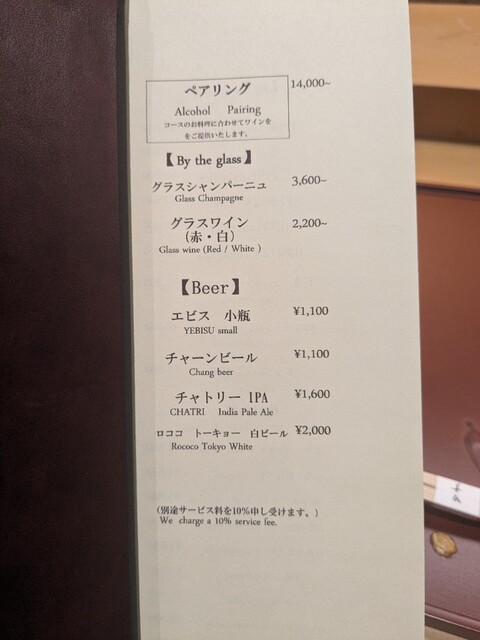 ペアリング 14,000~
Alcohol Pairing
コースのお料理に合わせてワインを
をご提供いたします。
【By the glass】
グラスシャンパーニュ 3,600~
Glass Champagne
グラスワイン 2,200~
(赤・白)
Glass wine (Red / White )
【Beer】
エビス 小瓶 ¥1,100
YEBISU small
チャーンビール ¥1,100
Chang beer
チャトリー IPA ¥1,600
CHATRI India Pale Ale
ロココ トーキョー 白ビール ¥2,000
Rococo Tokyo White
(別途サービス料を10%申し受けます。)
We charge a 10% service fee.